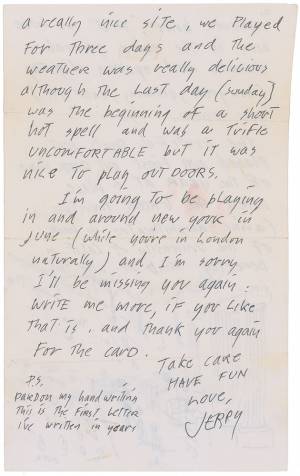 a really nice site, we played
for three days and the
weather was really delicious
although the last day (sunday)
was the beginning of a short
hot spell and was a trifle
UNCOMFORTABLE but it was
nice to play OUTDOORS.
I'm going to be playing
in and around new york in
June (while you're in London
naturally) and I'm sorry
I'll be missing you again.
Write me more, if you like
that is. and thank you again
for the card.
Take care
HAVE FUN
Love,
JERRY
P.S.
pardon my handwriting
this is the first letter
I've written in years